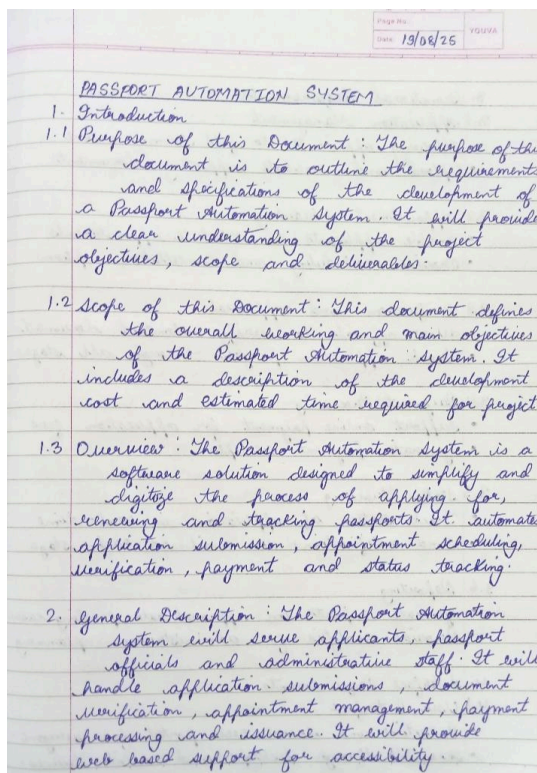 Page No.
Date: 19/08/25
YOUVA
PASSPORT AUTOMATION SYSTEM
1. Introduction
1.1 Purpose of this Document : The purpose of this
document is to outline the requirements
and specifications of the development of
a Passport Automation System. It will provide
a clear understanding of the project
objectives, scope and deliverables.
1.2 Scope of this Document : This document defines
the overall working and main objectives
of the Passport Automation System. It
includes a description of the development
cost and estimated time required for project
1.3 Overview : The Passport Automation System is a
software solution designed to simplify and
digitize the process of applying for,
renewing and tracking passports. It automate
application submission, appointment scheduling,
verification, payment and status tracking.
2. General Description : The Passport Automation
system will serve applicants, passport
officials and administrative staff. It will
handle application submissions, document
verification, appointment management, payment
processing and issuance. It will provide
web based support for accessibility.